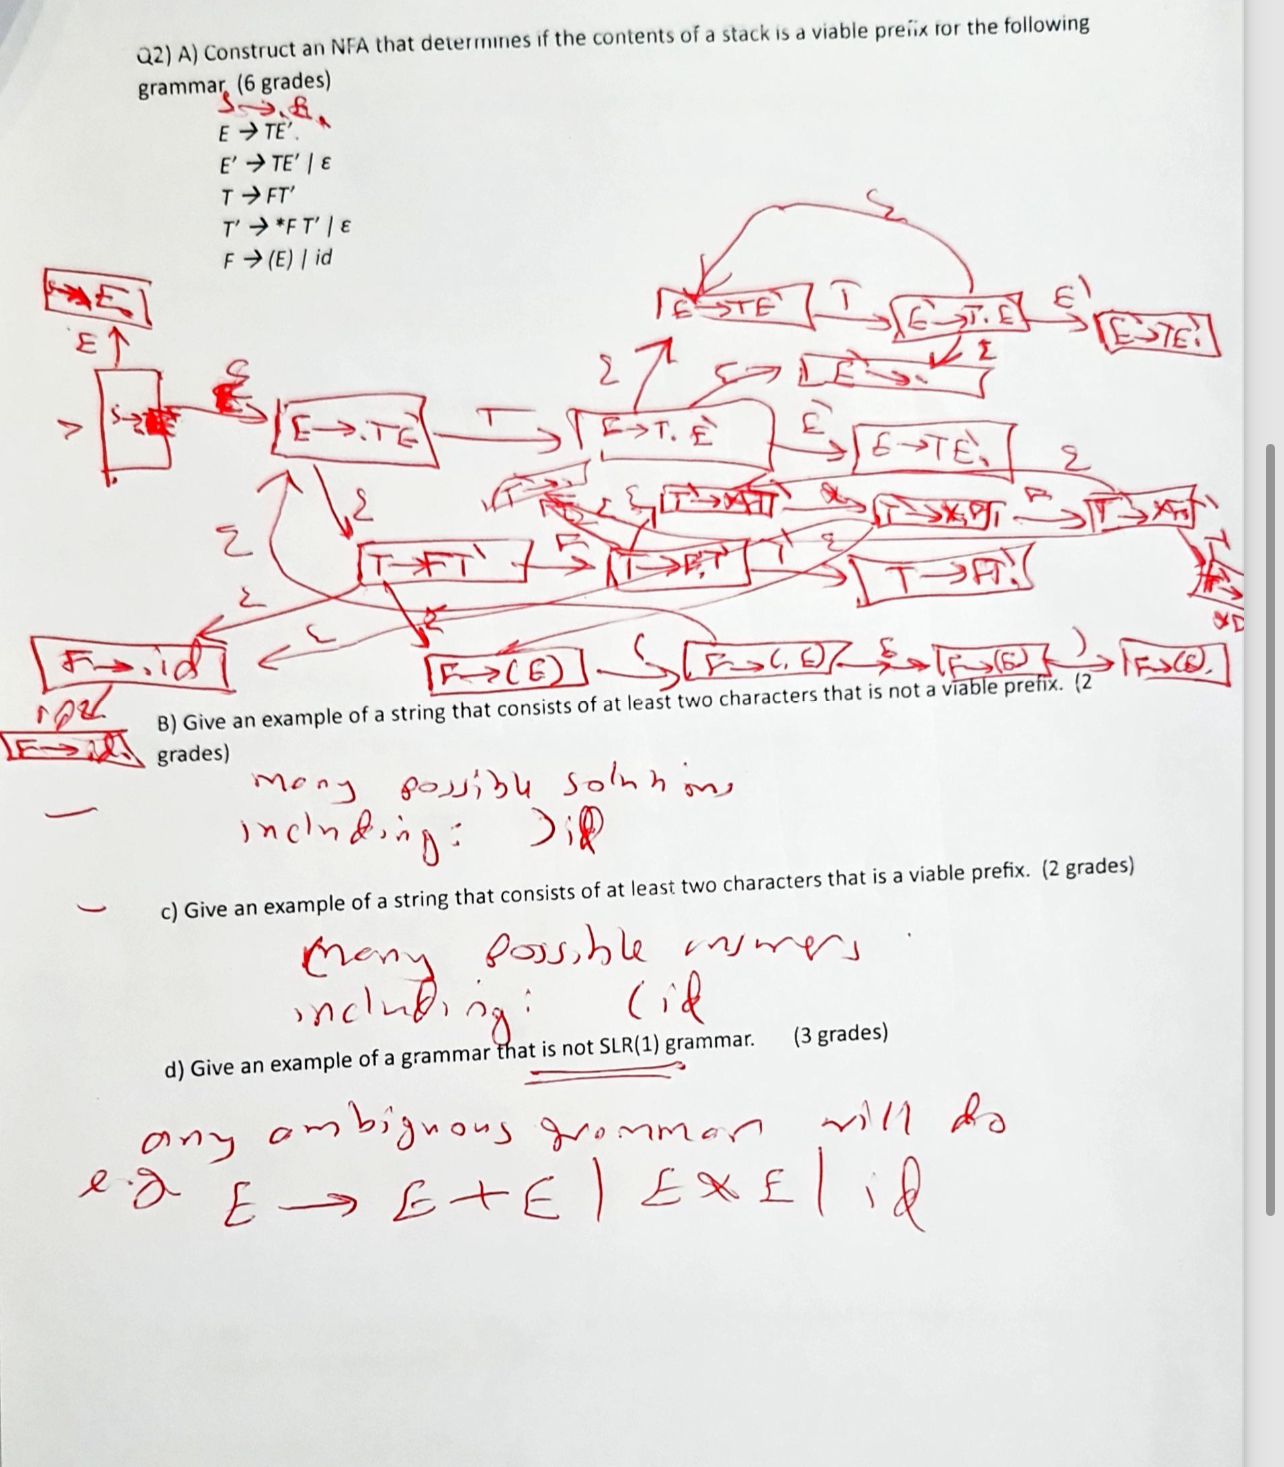 Q2) A) Construct an NFA that determines if the contents of a stack is a viable prefix for the following
grammar. (6 grades)
E → TE'
E' → TE' | ε
T → FT'
T' → *F T' | ε
F → (E) | id
E' → .TE' T E' → T.E' E' E' → TE'.
ε
ε ε E' → .
E → .TE' T E → T.E' E' E → TE'.
ε
T → FT' F T → F.T' T' T → FT'.
F → .id
F → (E) ( F → (.E) E F → (E) ) F → (E).
B) Give an example of a string that consists of at least two characters that is not a viable prefix. (2
grades)
many possible solutions
including: )id
c) Give an example of a string that consists of at least two characters that is a viable prefix. (2 grades)
many possible answers
including: (id
d) Give an example of a grammar that is not SLR(1) grammar. (3 grades)
any ambiguous grammar will do
e.g E → E + E | E * E | id